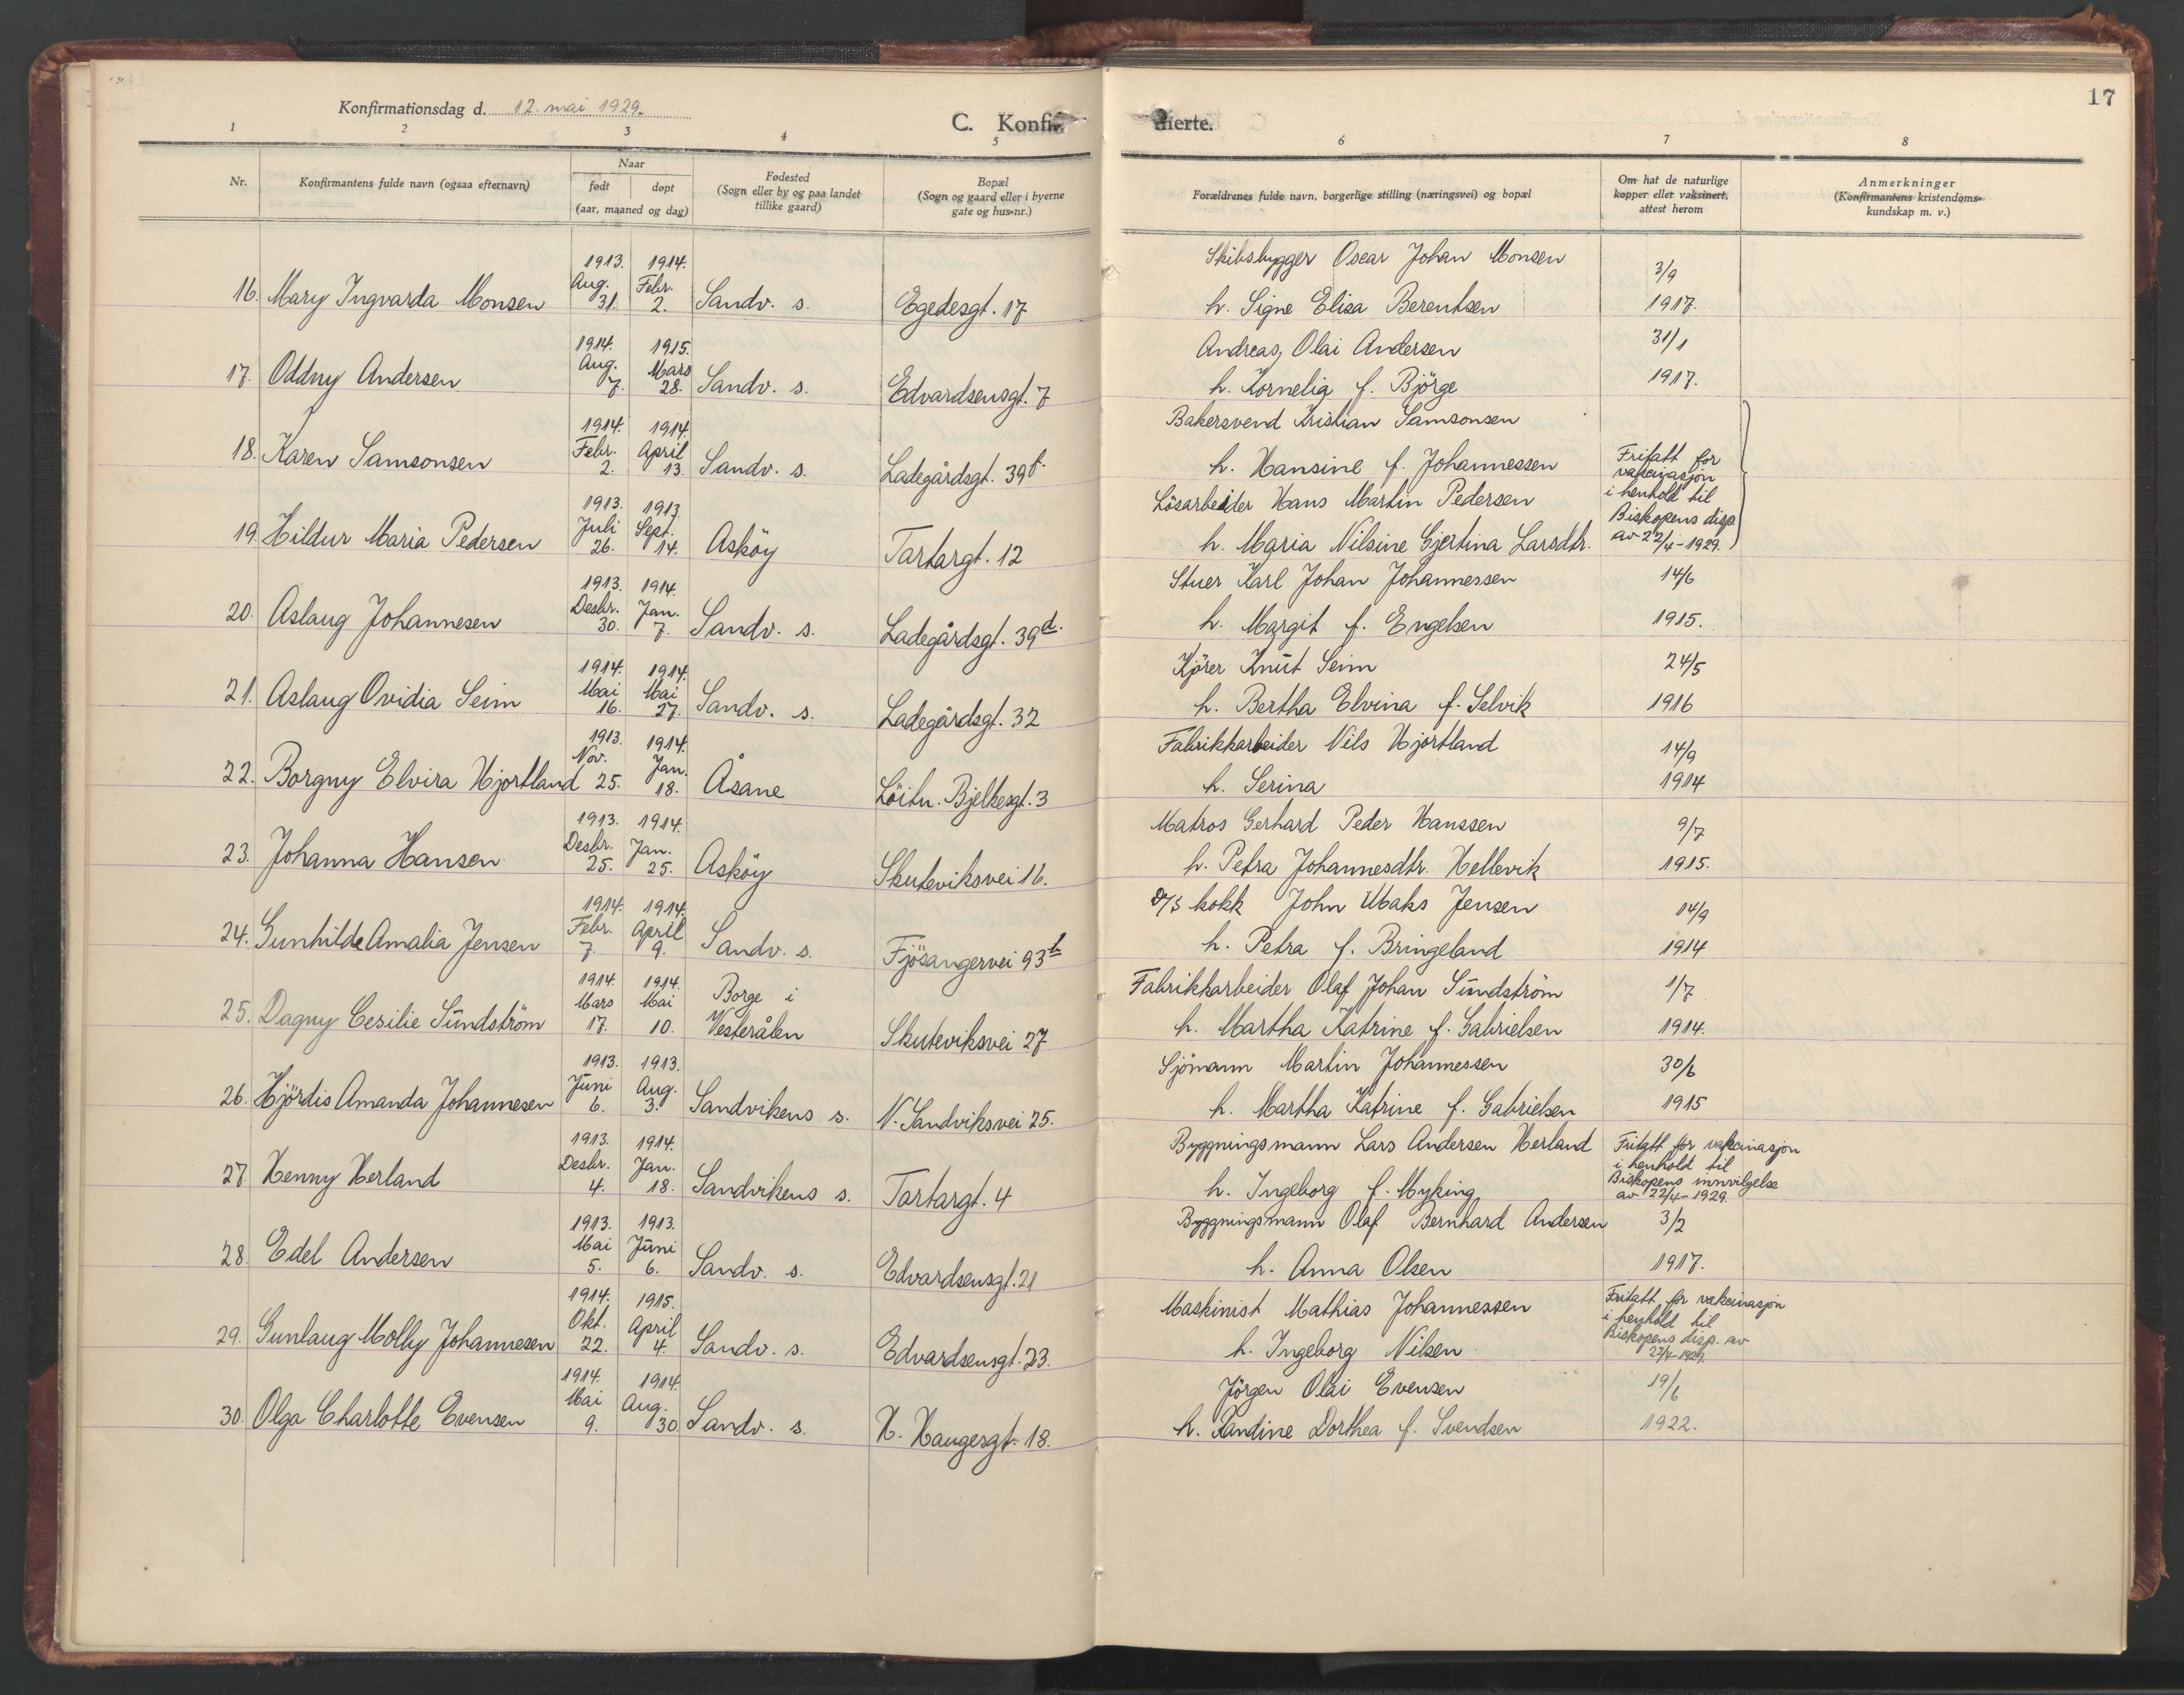 Konfirmationsdag d. 12. mai 1929.
C. Konfir
merte.
17
1 2 3 4 5 6 7 8
Nr.
Konfirmantens fulde navn (ogsaa efternavn)
Naar
født døpt
(aar, maaned og dag)
Fødested
(Sogn eller by og paa landet
tillike gaard)
Bopæl
(Sogn og gaard eller i byerne
gate og hus-nr.)
Forældrenes fulde navn, borgerlige stilling (næringsvei) og bopæl
Om hat de naturlige
kopper eller vaksinert,
attest herom
Anmerkninger
(Konfirmantens kristendoms-
kundskap m. v.)
1913. 1914. Skibsbygger Oscar Johan Monsen 3/9
16. Mary Ingvarda Monsen Aug. 31. Febr. 2. Sandv. s. Egedesgt. 17 h. Signe Elisa Berentsen 1917.
1914. 1915. Andreas Olai Andersen 31/1
17. Oddny Andersen Aug. 7. Mars 28. Sandv. s. Edvardsensgt. 7 h. Kornelia f. Björge 1917.
1914. 1914. Bakersvend Kristian Samsonsen
18. Karen Samsonsen Febr. 2. April 13. Sandv. s. Ladegårdsgt. 39 h. Hansine f. Johannessen
Fritatt for
vakcinasjon
i henhold til
Biskopens disp.
av 22/4-1929.
1913. 1913. Lösarbeider Hans Martin Pedersen
19. Hildur Maria Pedersen Juli 26. Sept. 14. Asköy Tartargt. 12 h. Maria Nilsine Gjertina Larsdtr.
1913. 1914. Stuer Karl Johan Johannessen 14/6
20. Aslaug Johannesen Desbr. 30. Jan. 7. Sandv. s. Ladegårdsgt. 39d. h. Margit f. Engelsen 1915.
1914. 1914. Kjörer Knut Seim 24/5
21. Aslaug Ovidia Seim Mai 16. Mai 27. Sandv. s. Ladegårdsgt. 32 h. Bertha Elvina f. Selvik 1916
1913. 1914. Fabrikkarbeider Nils Hjortland 14/9
22. Borgny Elvira Hjortland Nov. 25. Jan. 18. Åsane Löitn. Bjelkesgt. 3 h. Serina 1914
1913. 1914. Matros Gerhard Peder Hanssen 9/7
23. Johanna Hansen Desbr. 25. Jan. 25. Asköy Skuteviksvei 16. h. Petra Johannesdtr. Hellevik 1915.
1914. 1914. D/S kokk John Maks Jensen 14/9
24. Gunhilde Amalia Jensen Febr. 7. April 9. Sandv. s. Fjösangervei 93b h. Petra f. Bringeland 1914
1914. 1914. Borge i Fabrikkarbeider Olaf Johan Sundström 1/7
25. Dagny Cesilie Sundström Mars 17. Mai 10. Vesterålen Skuteviksvei 27 h. Martha Katrine f. Gabrielsen 1914.
1913. 1913. Sjömann Martin Johannessen 30/6
26. Hjördis Amanda Johannesen Juni 6. Aug. 3. Sandvikens s. N. Sandviksvei 25. h. Martha Katrine f. Gabrielsen 1915
1913. 1914. Byggningsmann Lars Andersen Herland
27 Henny Herland Desbr. 4. Jan. 18. Sandvikens s. Tartargt. 4 h. Ingeborg f. Myking
Fritatt for vakcinasjon
i henhold til
Biskopens innvilgelse
av 22/4-1929.
1913. 1913. Byggningsmann Olaf Bernhard Andersen 3/2
28. Edel Andersen Mai 5. Juni 6. Sandv. s. Edvardsensgt. 21 h. Anna Olsen 1917.
1914. 1915. Maskinist Mathias Johannessen
29. Gunlaug Molly Johannesen Okt. 22. April 4. Sandv. s. Edvardsensgt. 23. h. Ingeborg Nilsen
Fritatt for vakcinasjon
i henhold til
Biskopens disp. av
22/4-1929.
1914. 1914. Jörgen Olai Evensen 19/6
30. Olga Charlotte Evensen Mai 9. Aug. 30. Sandv. s. H. Haugesgt. 18. h. Randine Dorthea f. Svendsen 1922.